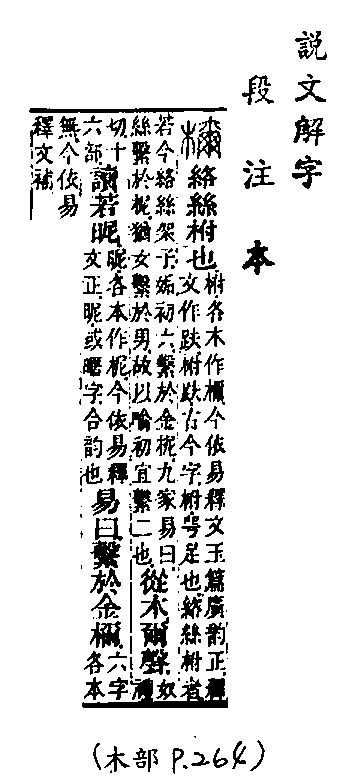 說文解字
段注本
檷 絡絲柎也 柎各本作檷今依易釋文玉篇廣韵正釋
文作趺柎趺古今字柎咢足也絡絲柎者
若今絡絲架子姤初六繫於金柅九家易曰
絲繫於柅猶女繫於男故以喻初宜繫二也
從木爾聲 奴
禮
切十
六部
讀若昵 昵各本作柅今依易釋
文正昵或暱字合韵也
易曰繫於金檷 六字
各本
無今依易
釋文補
(木部 P.264)